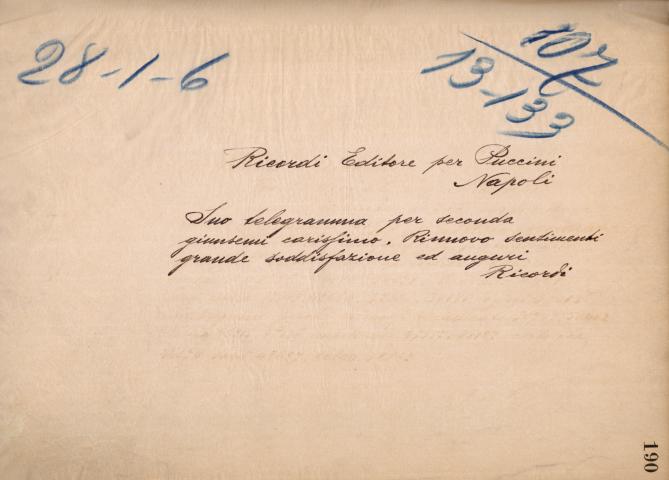 28-1-6
107
13-133
Ricordi Editore per Puccini
Napoli
Suo telegramma per seconda
giunsemi carissimo. Rinnovo sentimenti
grande soddisfazione ed auguri
Ricordi
190